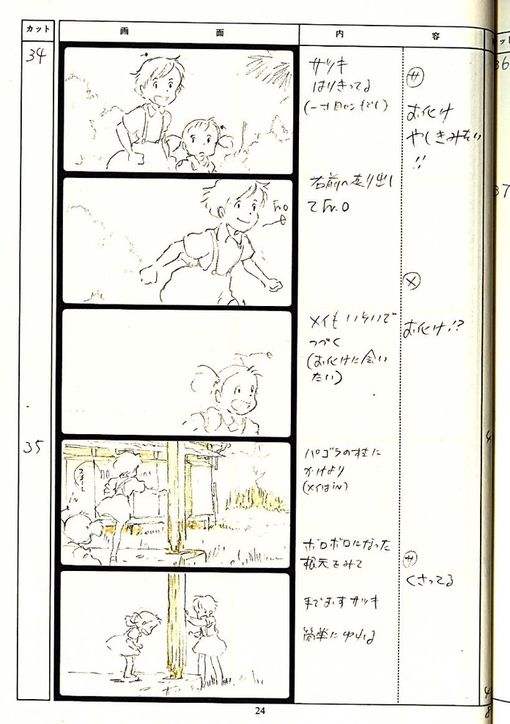 カット
画面
内容
34
サツキ
はりきってる
サ
お化け
やしきみたい
!!
右前へ走り出し
て Fr.O
Fr.O
メ
メイも いそいで
つづく
(お化けに会い
たい)
お化け!?
35
パゴラの柱に
かけより
(メイはin)
ボロボロになった
根元をみて
サ
くさってる
手でおすサツキ
簡単にゆれる
24
36
37